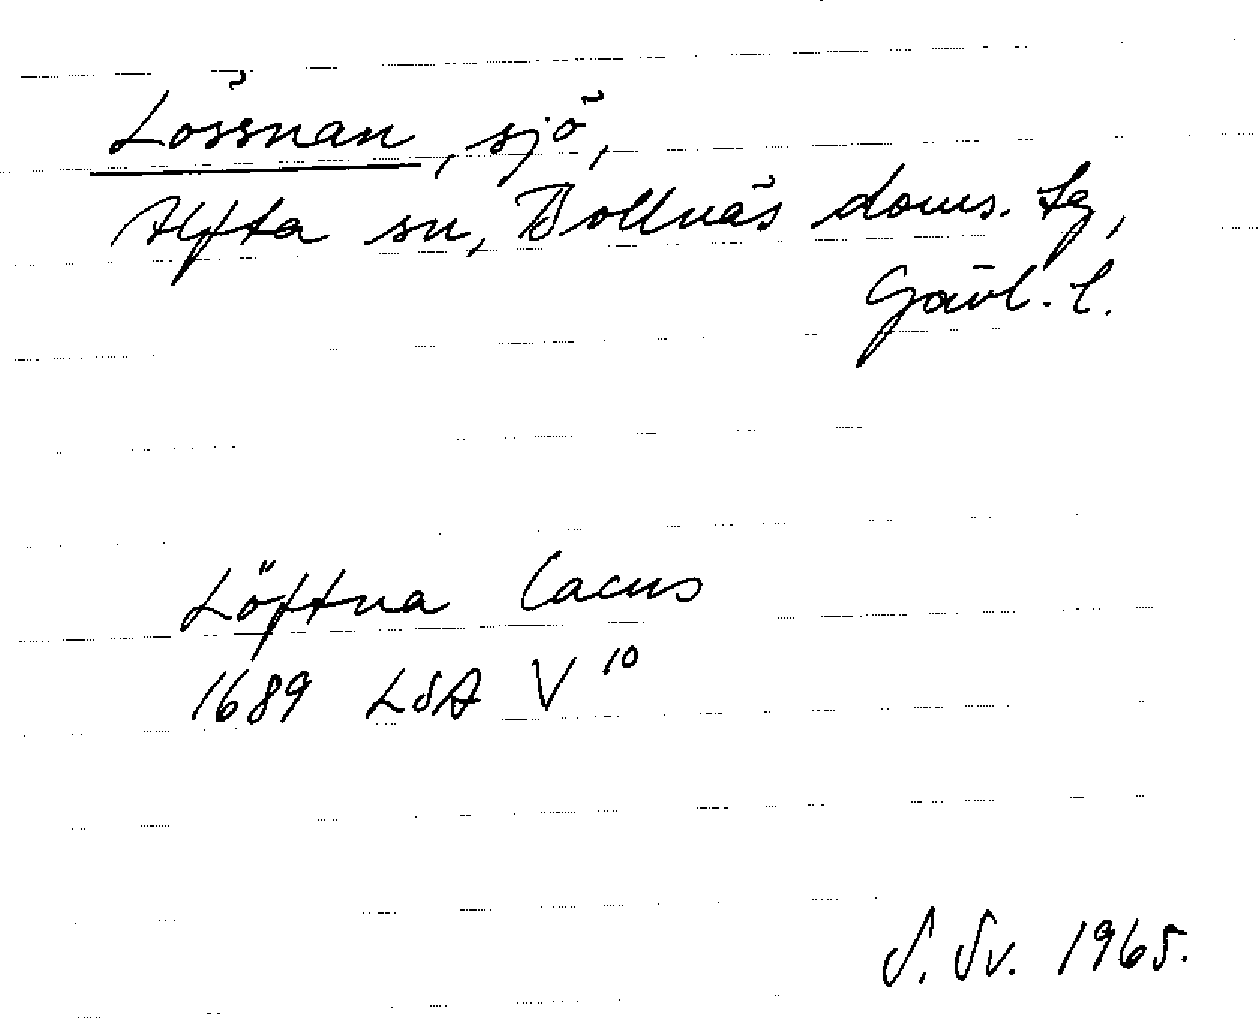 Lössnan, sjö,
Alfta sn, Bollnäs doms. tg,
Gävl. l.
Löftna Lacus
1689 LSA V 10
S. Sv. 1965.